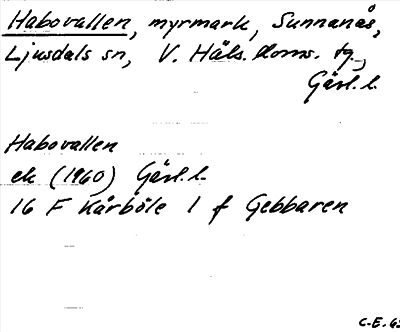 Habovallen, myrmark, Sunnanås,
Ljusdals sn, V. Häls. doms. tg.,
Gävl.l.
Habovallen
ek (1960) Gävl.l.
16 F Kårböle 1 f Gebbaren
C-E.